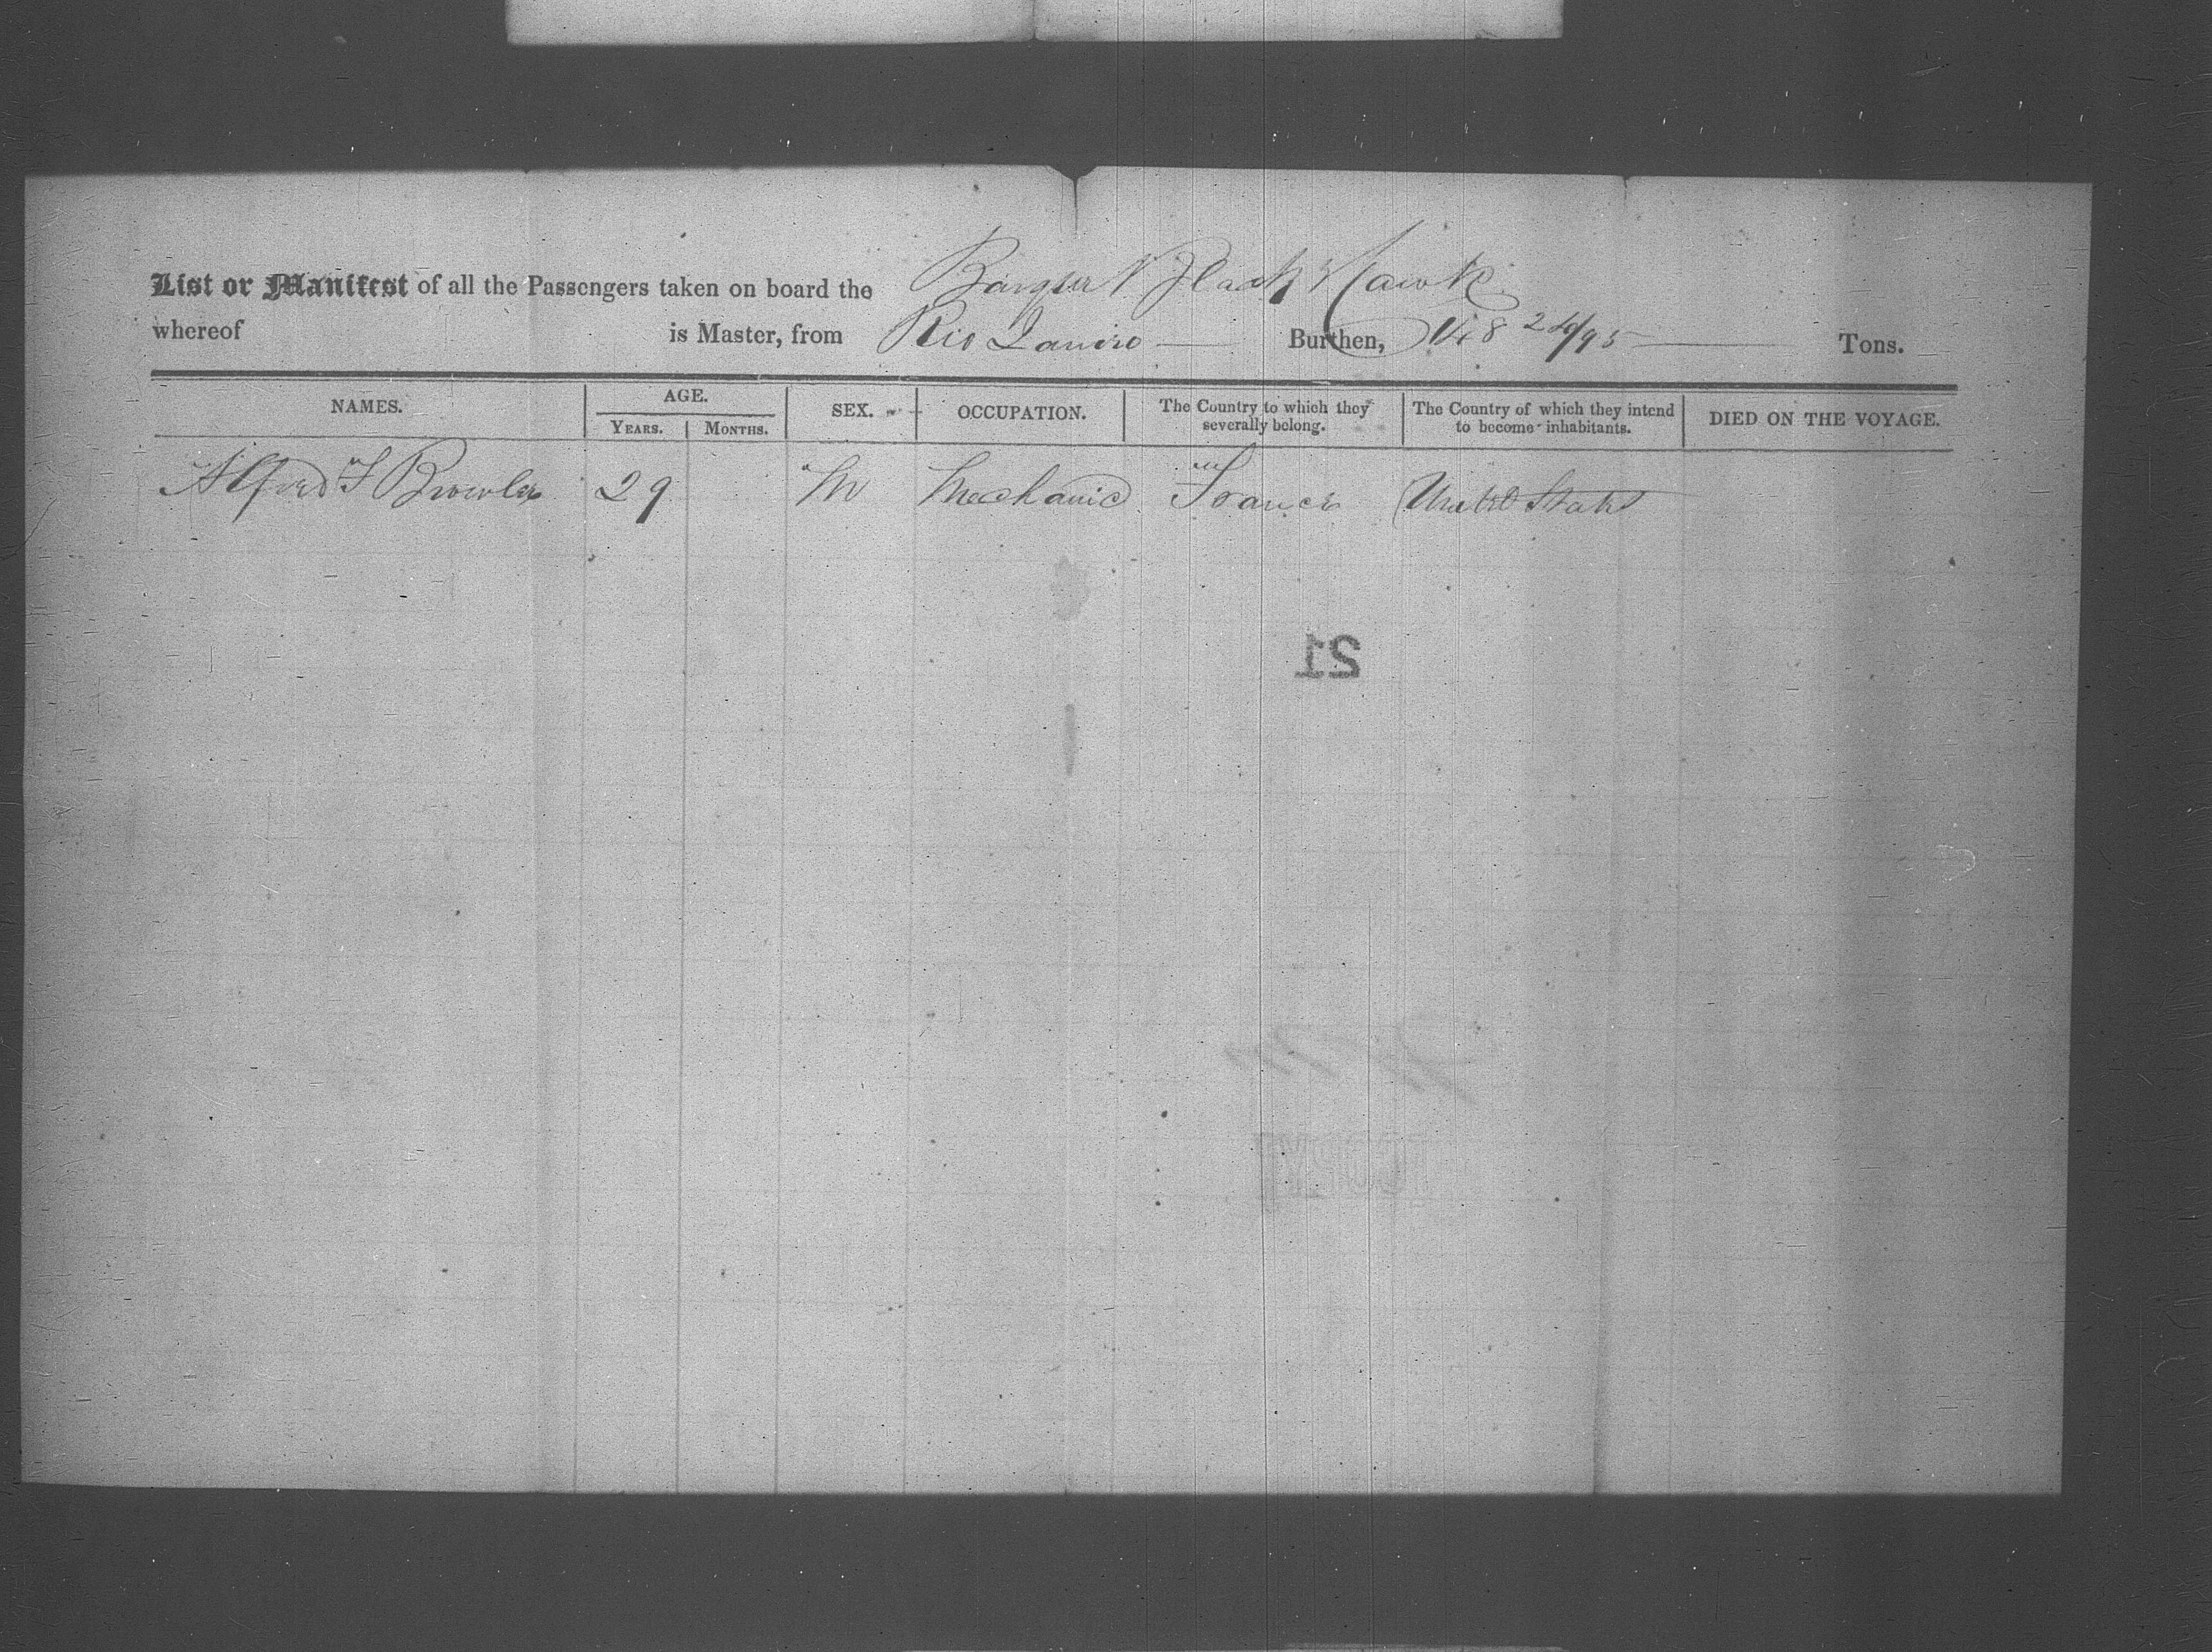 List or Manifest of all the Passengers taken on board the Barque Black Hawk
whereof is Master, from Rio Janeiro Burthen, 24/95 Tons.
NAMES. AGE. SEX. OCCUPATION. The Country to which they severally belong. The Country of which they intend to become inhabitants. DIED ON THE VOYAGE.
YEARS. MONTHS.
Alfred 29 M Mechanic France United States
21